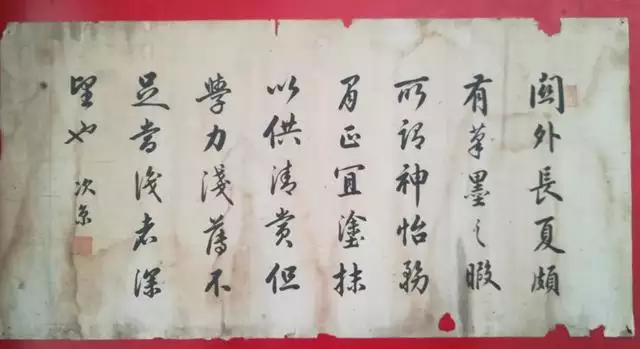 關外長夏頗
有筆墨之暇
所謂神怡務
閒正宜塗抹
以供清賞但
學力淺薄不
足當者深
望也 次京